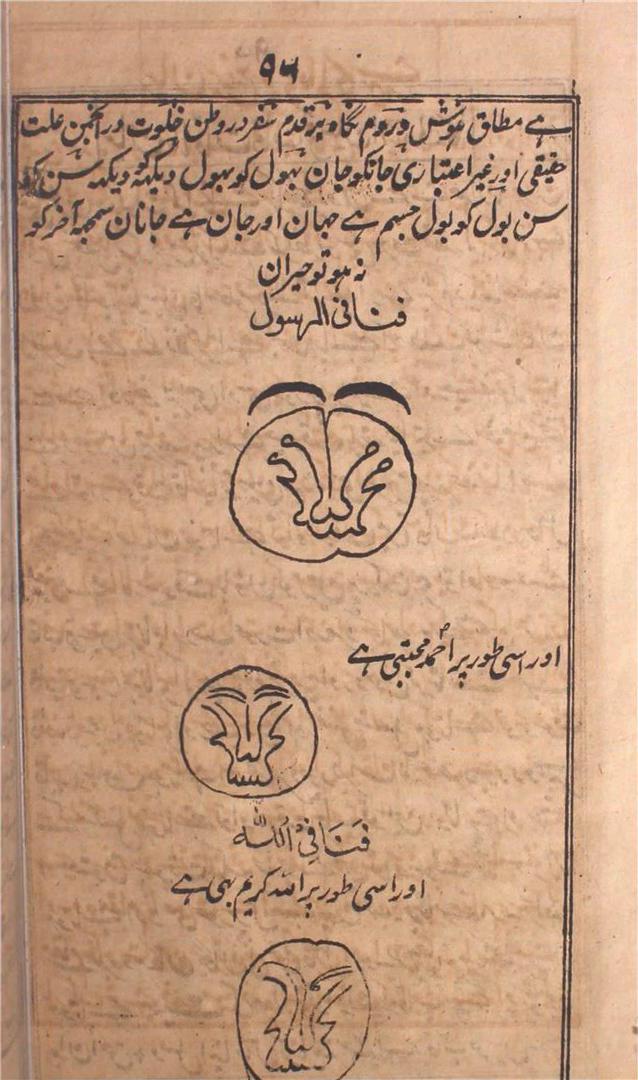 ۹۵
ہے مطابق ہوش در دم نگاہ بر قدم سفر در وطن خلوت در انجمن علت
حقیقی اور غیر اعتباری جانکو جان بھول کو بھول دیکھ کو دیکھ سن کو
سن بول کو بول جسم ہے جہان اور جان ہے جانان سمجہہ آخر کو
نہ ہو تو حیران
فنا فی الرسول
اور اسی طور پر احمد مجتبیٰ ہے
فَنَا فِی اللّٰہ
اور اسی طور پر اللہ کریم بہی ہے